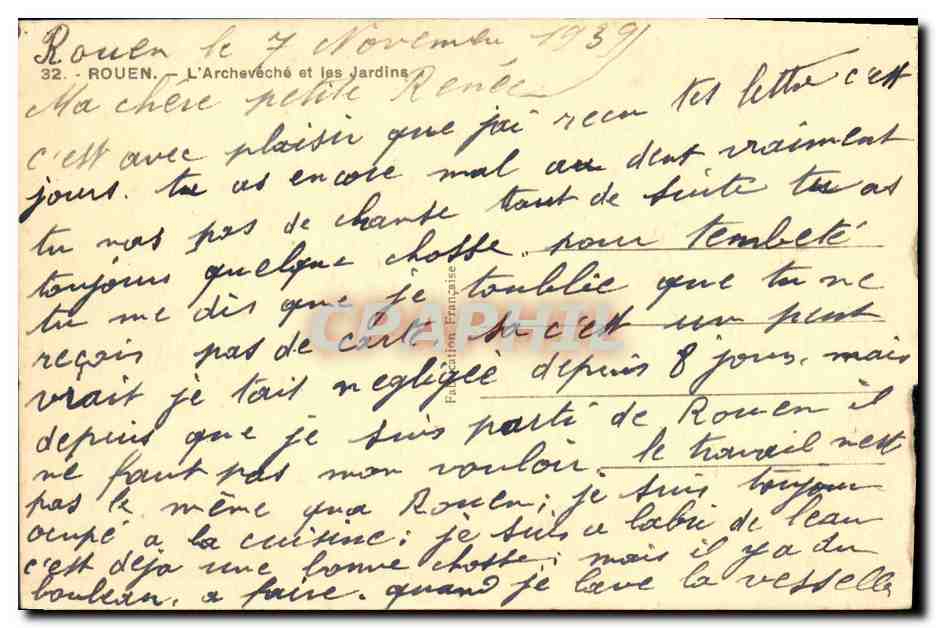 Rouen le 7 Novembre 1939
32. - ROUEN. - L'Archevêché et les Jardins
Ma chère petite Renée
c'est avec plaisir que j'ai recu tes lettre c'est
jours. tu as encore mal au dent vraiment
tu nas pas de chanse tout de suite tu as
toujours quelque chosse. pour tembeté
tu me dis que je toublie que tu ne
reçois pas de carte sa c'est un peut
vrait je tait negligée depuis 8 jours. mais
depuis que je suis parti de Rouen il
ne faut pas mon vouloir. le travail nest
pas le même qua Rouen; je suis toujour
ocupé a la cuisine; je suis a labri de leau
c'est déja une bonne chosse; mais il y a du
bouleau. a faire. quand je lave la vesselle
Fabrication Française
CPAPHIL